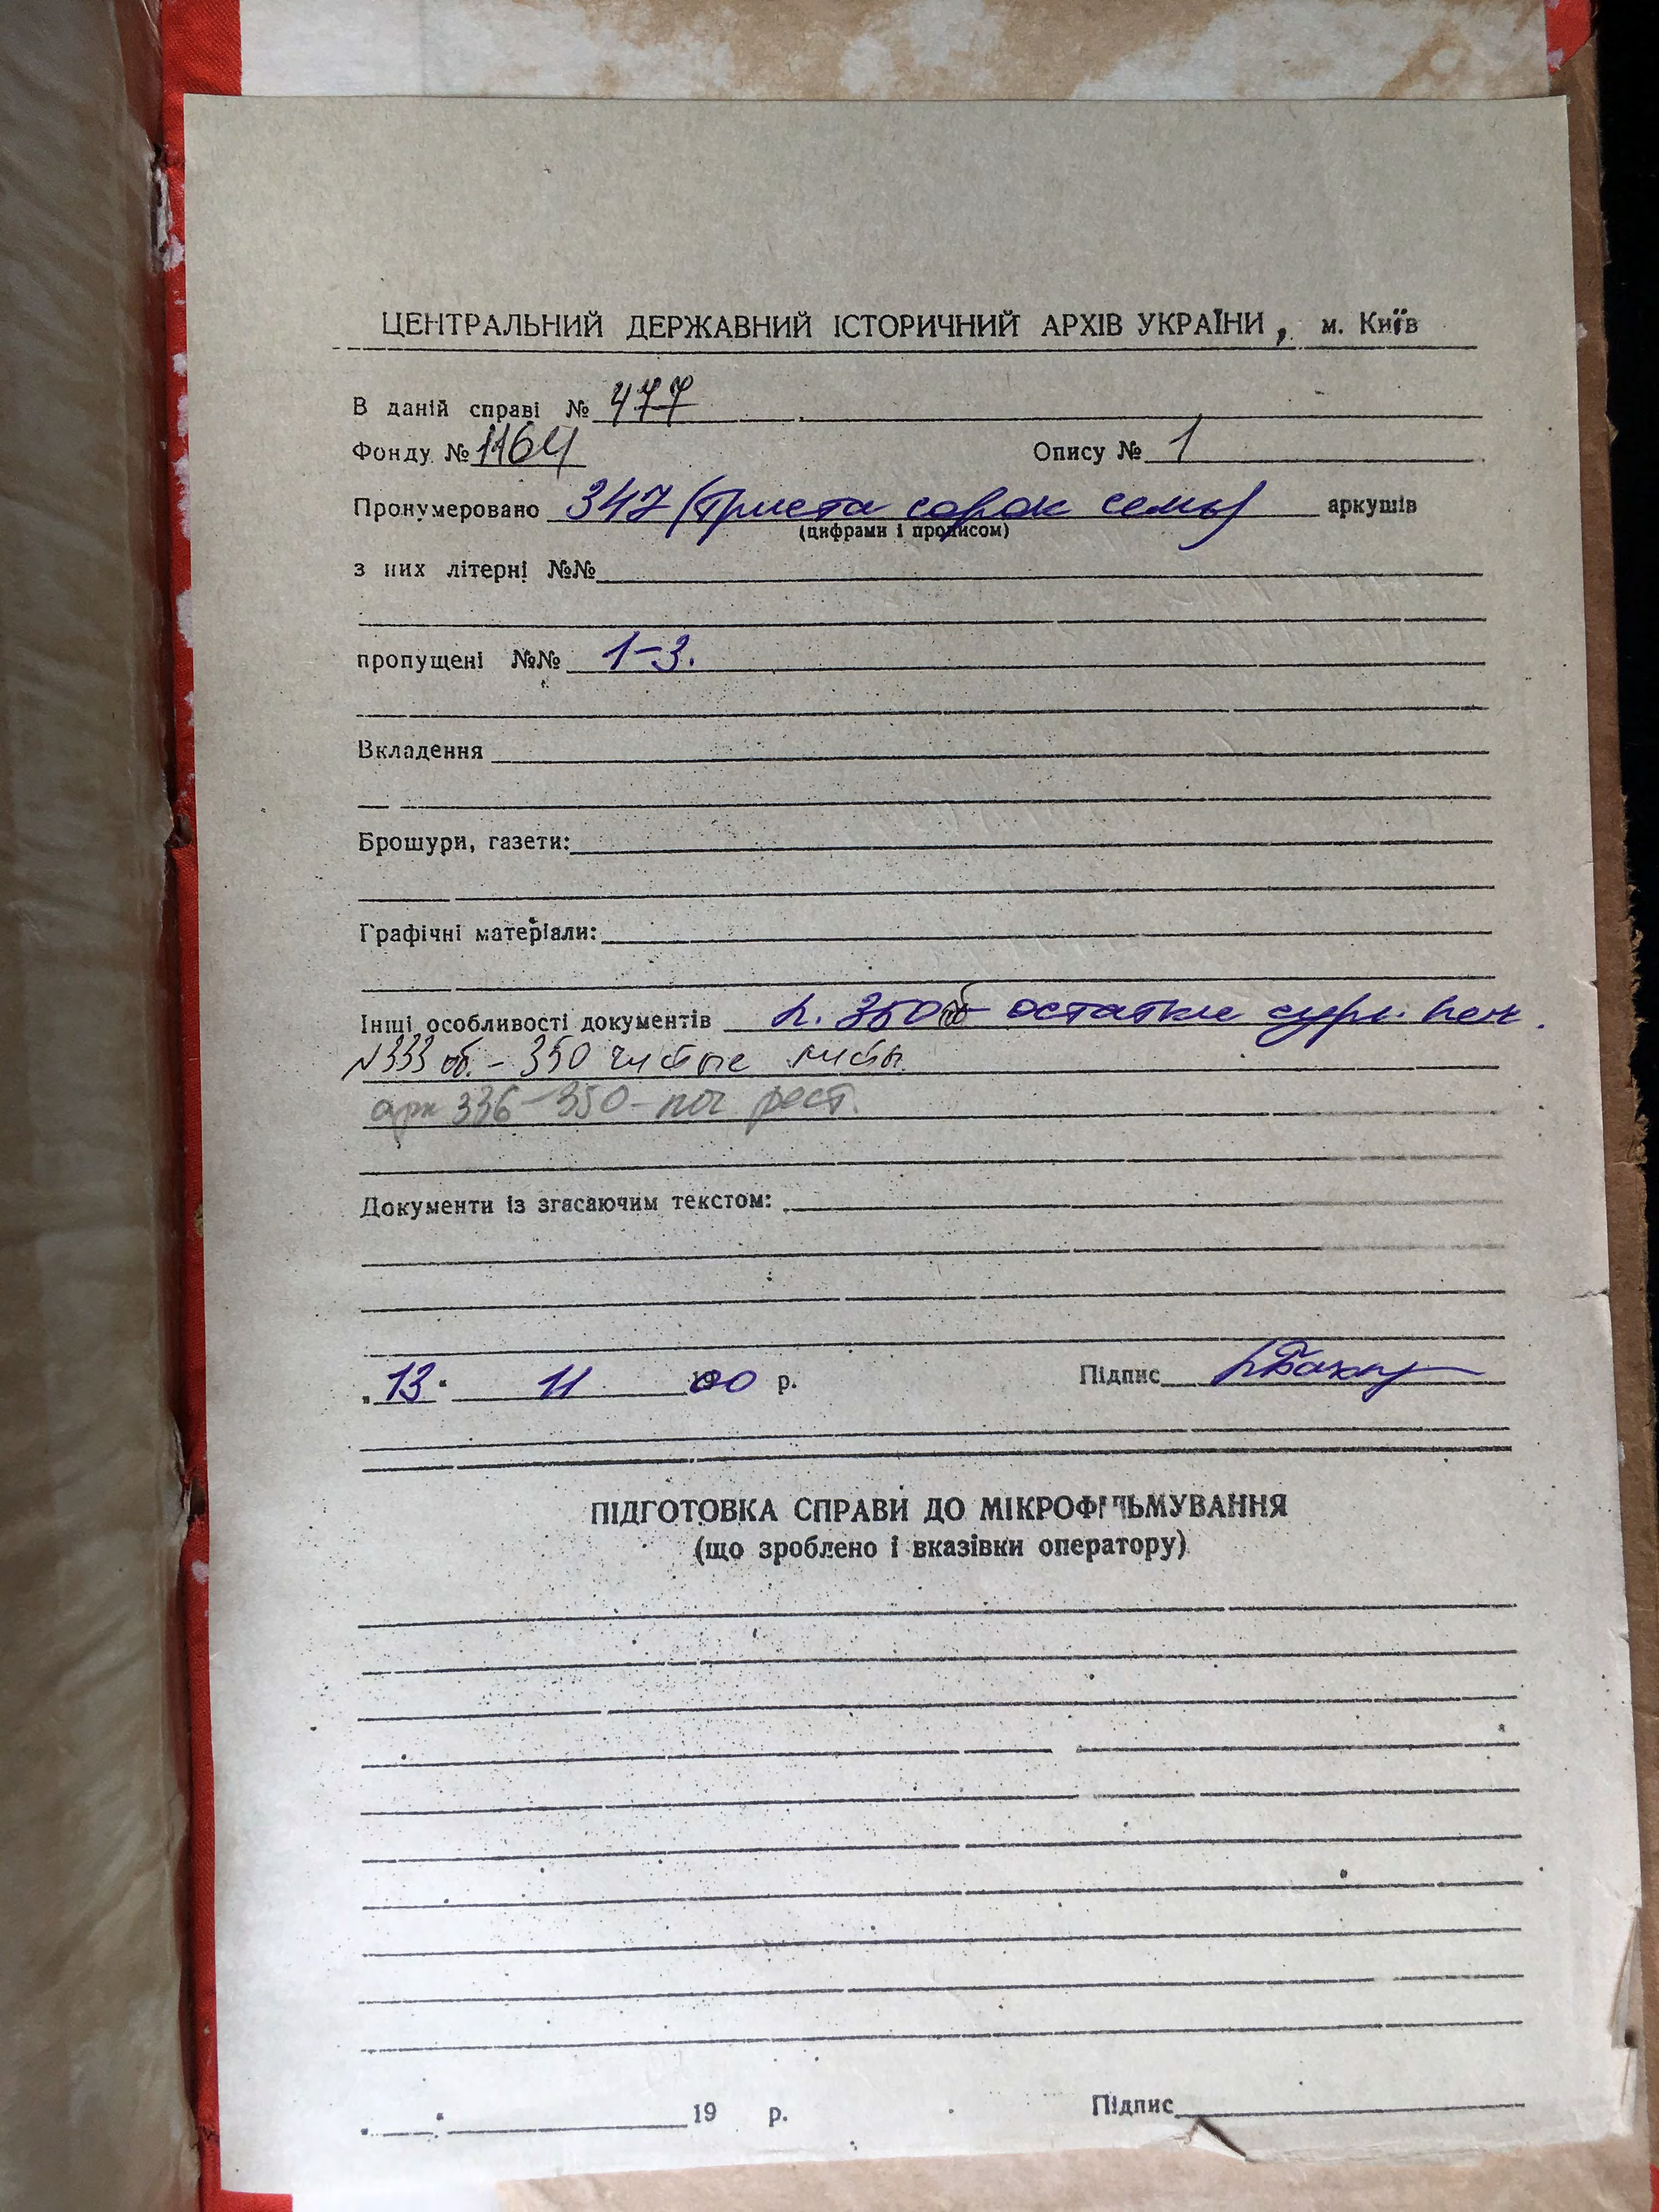 ЦЕНТРАЛЬНИЙ ДЕРЖАВНИЙ ІСТОРИЧНИЙ АРХІВ УКРАЇНИ, м. Київ
В даній справі № 477
Фонду № 1164 Опису № 1
Пронумеровано 347 (триста сорок семь) аркушів
(цифрами і прописом)
з них літерні №№
пропущені №№ 1-3.
Вкладення
Брошури, газети:
Графічні матеріали:
Інші особливості документів л. 350об - остатки сург. печ.
№333 об. - 350 чистые листы.
арк 336-350 - пот рест.
Документи із згасаючим текстом:
„13" 11 00 р. Підпис
ПІДГОТОВКА СПРАВИ ДО МІКРОФІЛЬМУВАННЯ
(що зроблено і вказівки оператору)
19 р. Підпис